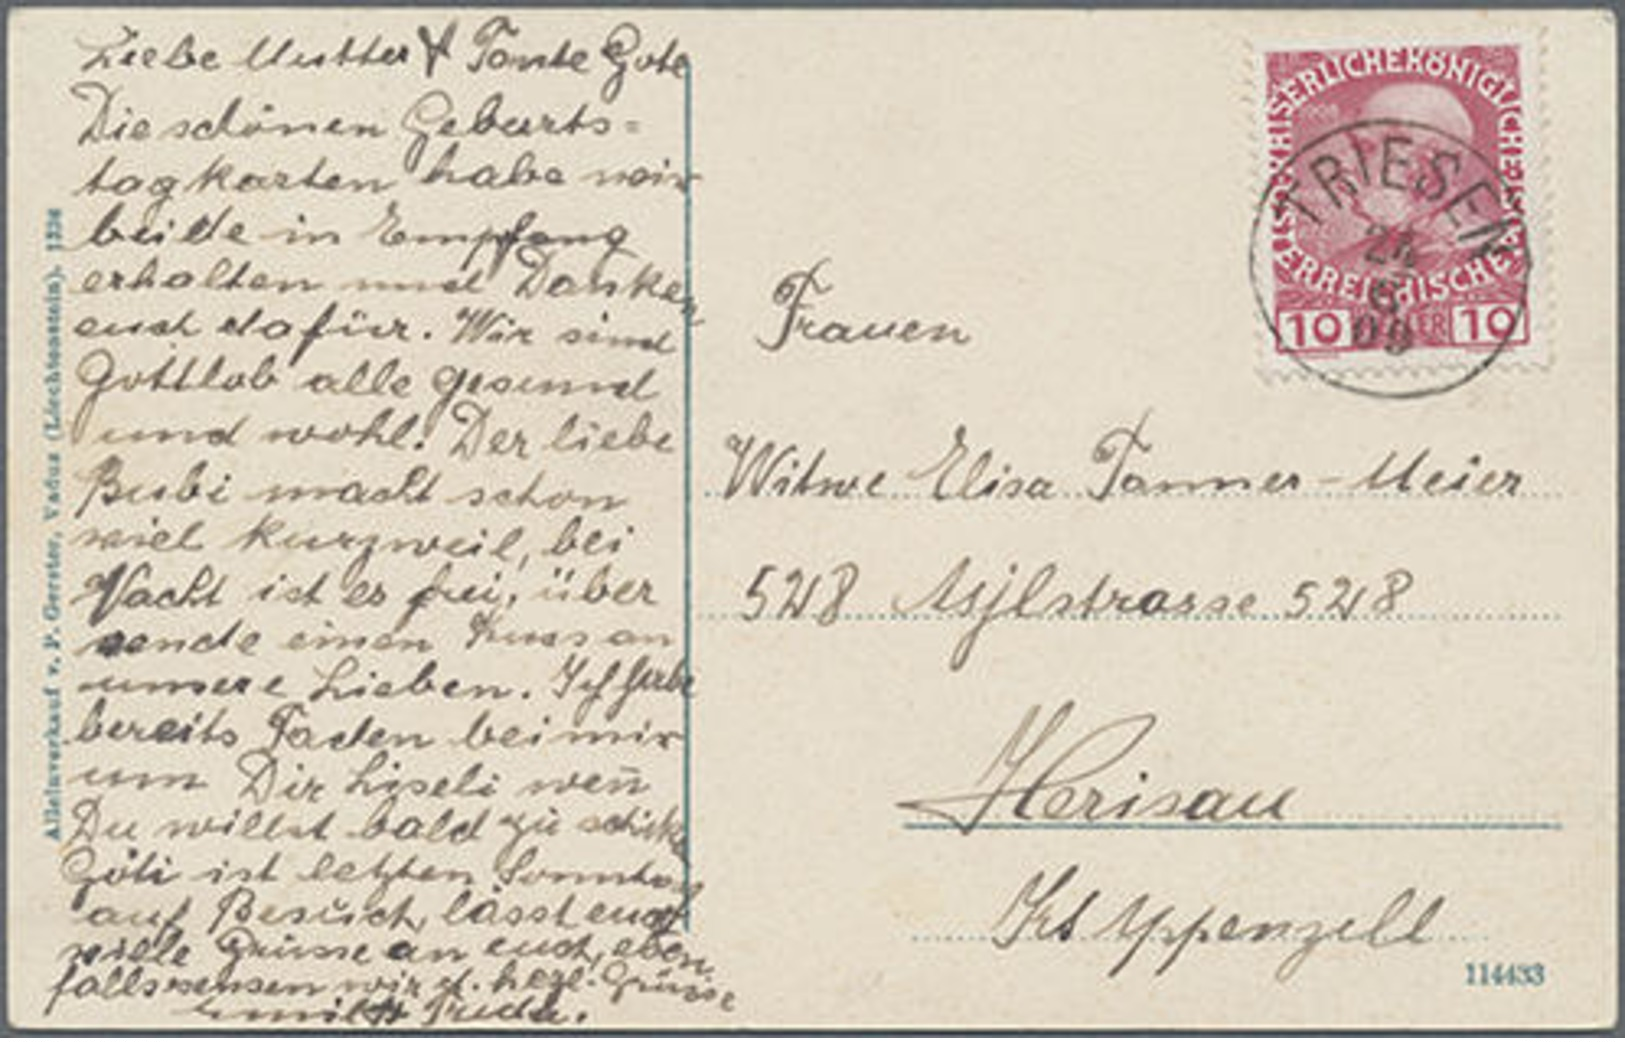 Liebe Mutter & Tante Gote
Die schönen Geburts=
tagkarten habe wir
beide in Empfang
erhalten und Danken
euch dafür. Wir sind
Gottlob alle gesund
und wohl. Der liebe
Bubi macht schon
viel kurzweil, bei
Nacht ist es frei, über
sende einen Kuss an
unsere Lieben. Ich habe
bereits Faden bei mir
um Dir Liseli wen̄
Du willst bald zu schike
Göti ist letzten Sonntag
auf Besuch, lässt euch
viele Grüsse an euch, eben
falls senden wir d. hezl. Grüsse
Emil & Frieda.
Alleinverkauf v. F. Gerster, Vadus (Liechtenstein). 1336
KAISERLICHEKÖNIGLICHE
ÖSTERREICHISCHE
1908
10 HELLER 10
TRIESEN
24
09
Frauen
Witwe Elisa Tanner-Meier
528 Asylstrasse 528
Herisau
Kt Appenzell
114433